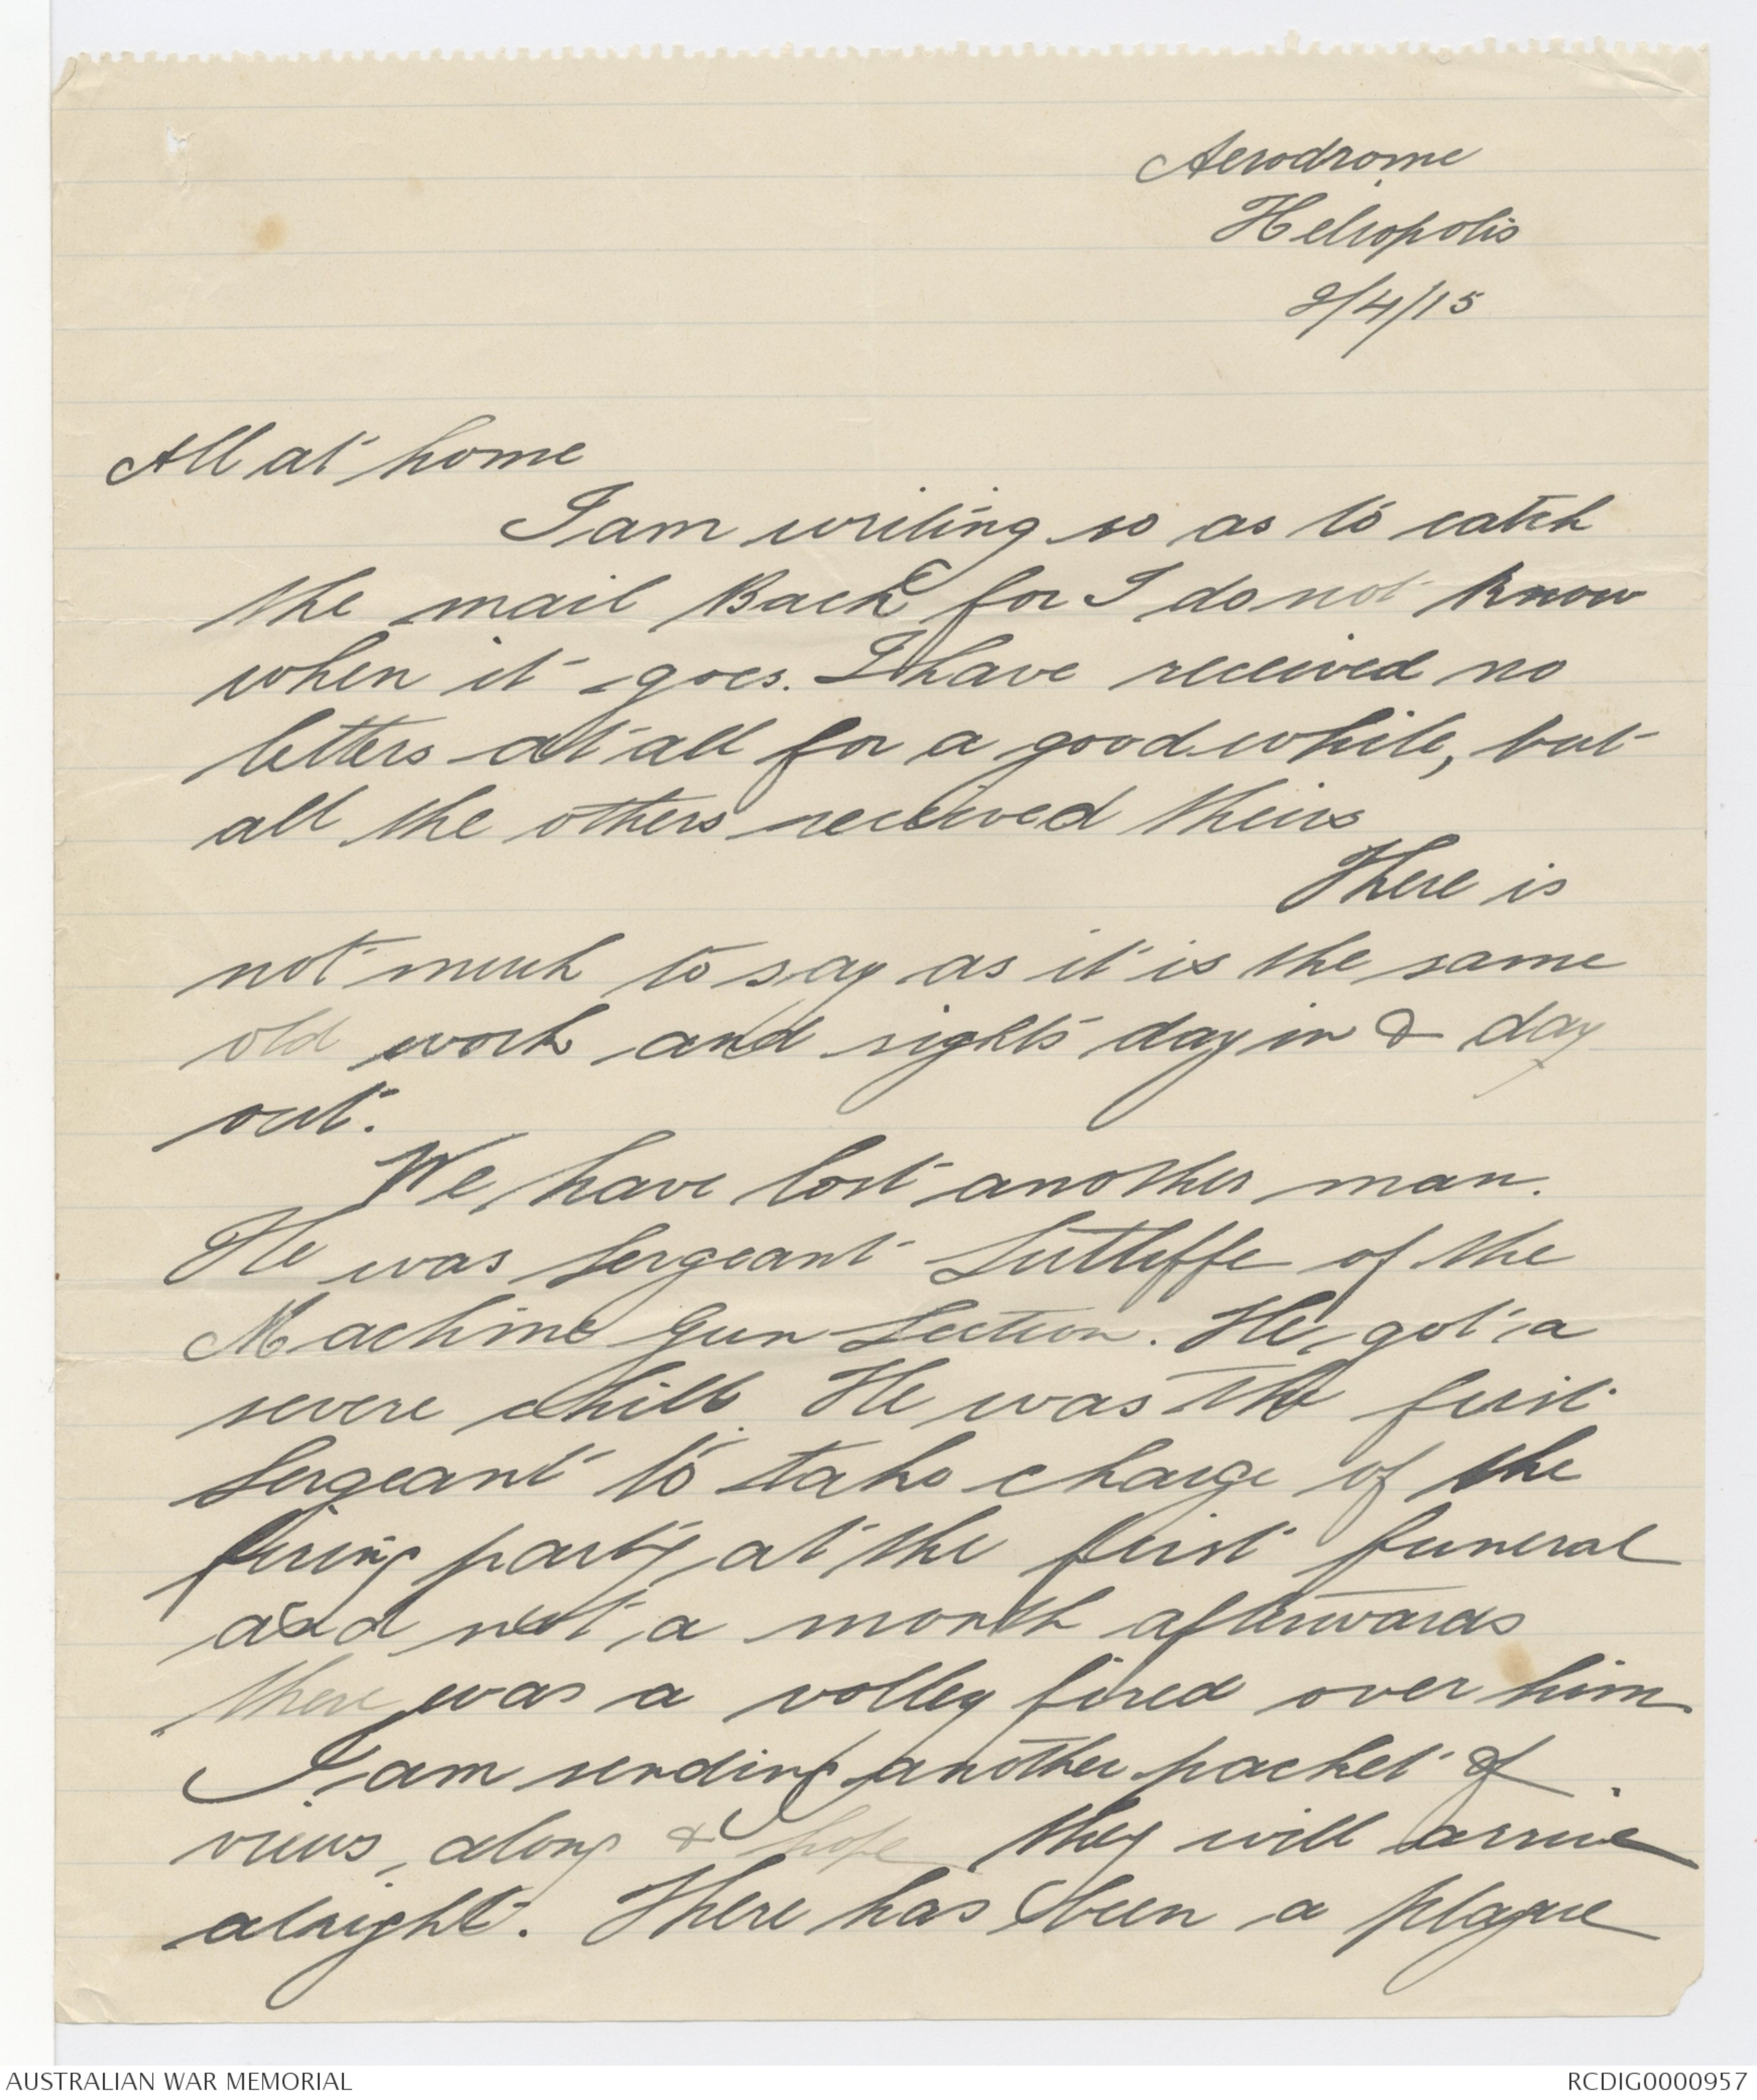 Aerodrome
Heliopolis
2/4/15
All at home
I am writing so as to catch
the mail Back for I do not know
when it goes. I have received no
letters at all for a good while, but
all the others received theirs
There is
not much to say as it is the same
old work and sights day in & day
out.
We have lost another man.
He was Sergeant Sutliffe of the
Machine Gun Section. He got a
severe chill. He was the first
Sergeant to take charge of the
firing party at the first funeral
and not a month afterwards
there was a volley fired over him
I am sending another packet of
views along & hope they will arrive
alright. There has been a plague
AUSTRALIAN WAR MEMORIAL
RCDIG0000957